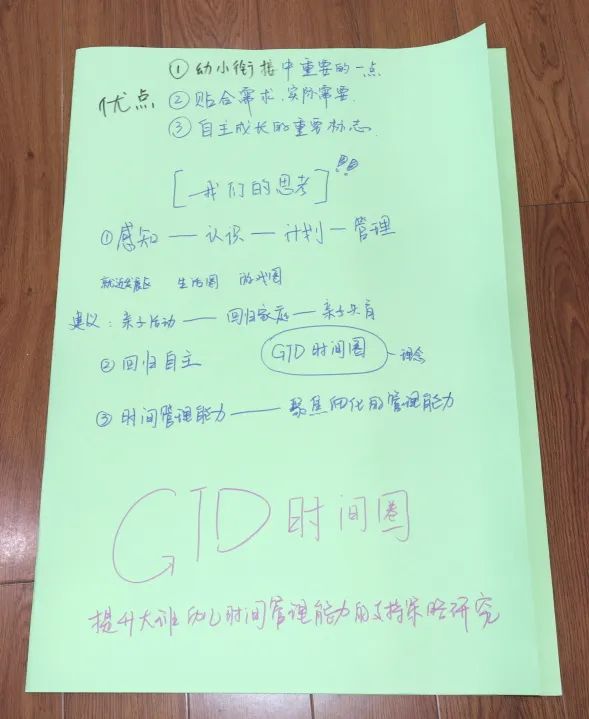 ① 幼小衔接中重要的一点
优点 ② 贴合需求、实际需要.
③ 自主成长的重要标志.
[我们的思考]
① 感知 — 认识 — 计划 — 管理
就近发展区 生活圈 游戏圈
建议：亲子活动 — 回归家庭 — 亲子共育
② 回归自主 GTD 时间圈 - 理念
③ 时间管理能力 —— 聚焦 的管理能力
GTD 时间圈
提升大班幼儿时间管理能力的支持策略研究